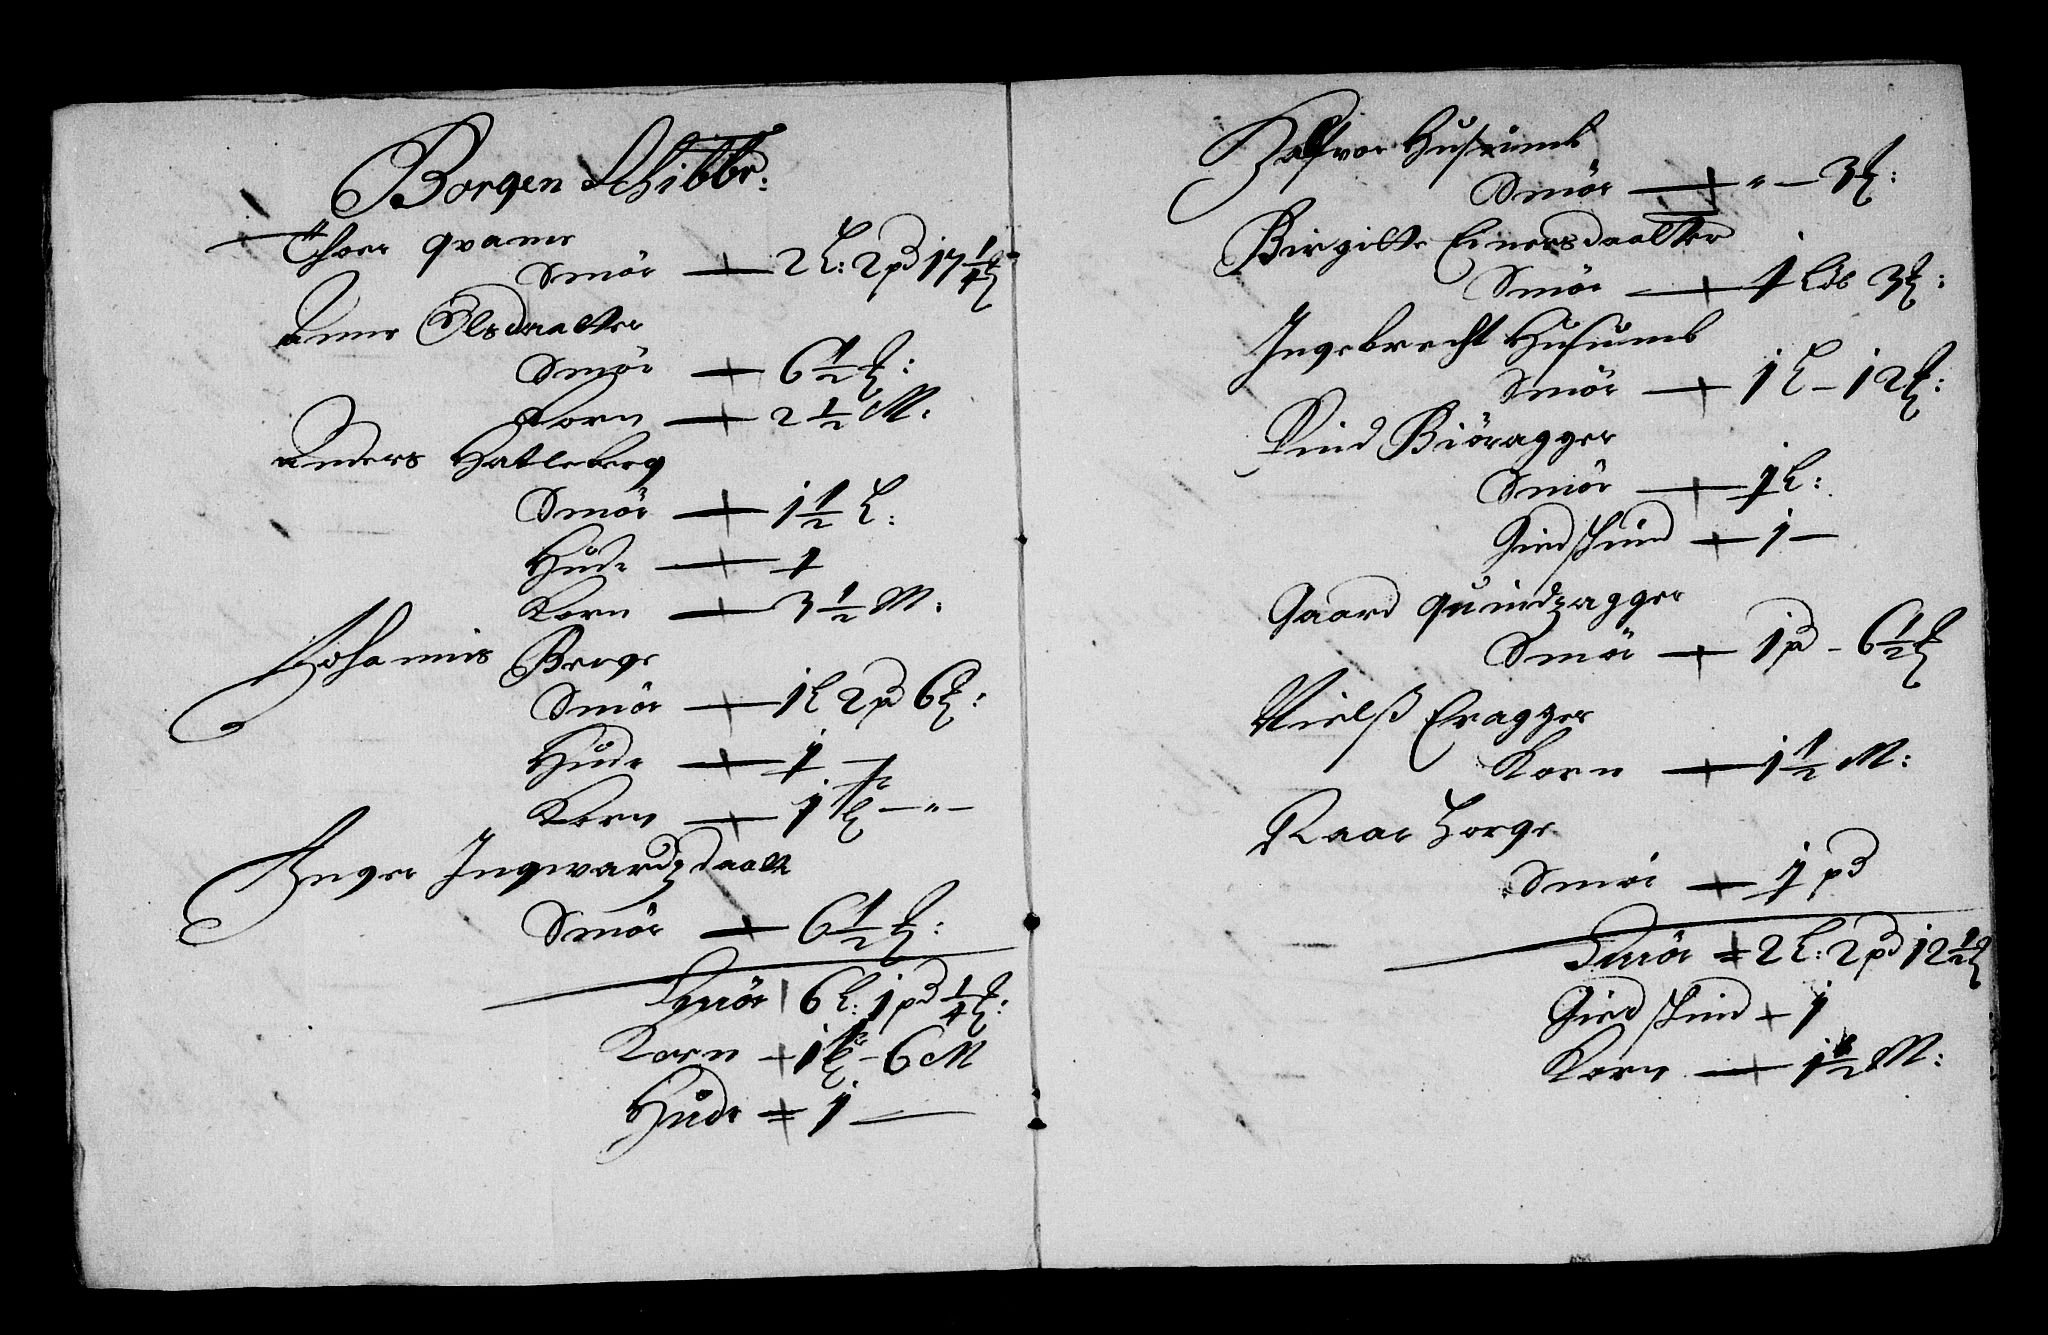 Borgen Schibbr:
Thoer Qvame
Smör — 2 L: 2 pd 17 1/4 ℔
Anne Olsdaatter
Smör — 6 1/2 ℔:
Korn — 2 1/2 M:
Anders Hatleberg
Smör — 1 1/2 L:
Hude — 1
Korn — 3 1/2 M:
Johannis Berge
Smör — 1 L 2 pd 6 ℔:
Hude — 1 —
Korn — 1 — " —
Inger Ingwardzdaatt
Smör — 6 1/2 ℔:
Smör 6 L: 1 pd 1/4 ℔:
Korn — 1 — 6 M
Hude = 1 —
Halfvor Husiumb
Smör — " — 3 ℔:
Birgitte Einersdaatter
Smör — 1 Löb 3 ℔:
Ingebrecht Husumb
Smör — 1 L — 12 ℔:
Find Biöragger
Smör — 1 L:
Giedschind — 1 —
Gaard Quindzagger
Smör — 1 pd — 6 1/2 ℔
Nielß Eragger
Korn — 1 1/2 M:
Raae Horge
Smör — 1 pd
Smör = 2 L: 2 pd 12 1/2 ℔
Giedschind — 1
Korn — 1 1/2 M: